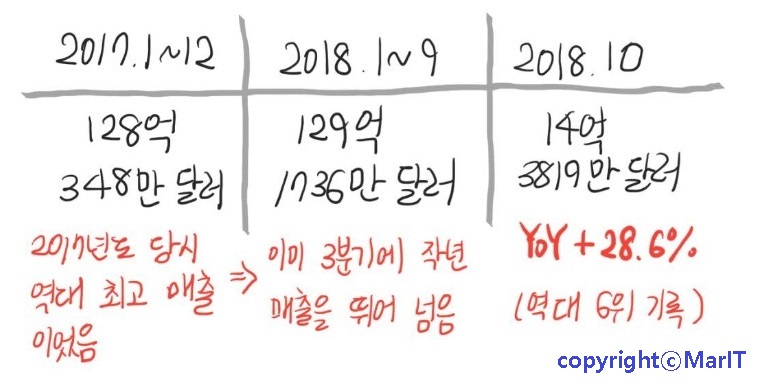 2017.1~12
2018.1~9
2018.10
128억
348만 달러
129억
1736만 달러
14억
3819만 달러
2017년도 당시
역대 최고 매출
이었음
⇒ 이미 3분기에 작년
매출을 뛰어 넘음
YoY + 28.6%
(역대 6위 기록)
copyrightⓒMarIT